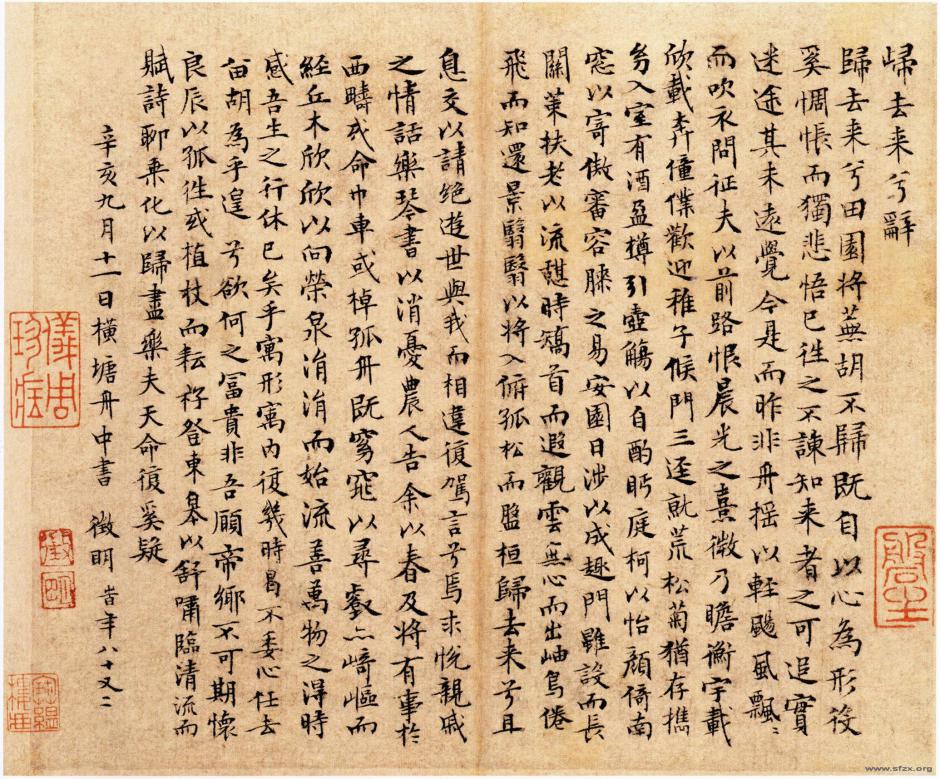 歸去来兮辭
歸去来兮田園将蕪胡不歸既自以心為形役
奚惆悵而獨悲悟已往之不諫知来者之可追實
迷途其未遠覺今是而昨非舟揺以輕颺風飄〻
而吹衣問征夫以前路恨晨光之熹微乃瞻衡宇載
欣載奔僮僕歡迎稚子候門三逕就荒松菊猶存携
㓜入室有酒盈樽引壺觴以自酌眄庭柯以怡顔倚南
窓以寄傲審容膝之易安園日涉以成趣門雖設而長
關策扶老以流憩時矯首而遐觀雲無心而出岫鳥倦
飛而知還景翳翳以将入俯孤松而盤桓歸去来兮且
息交以請絶遊世與我而相違復駕言兮焉求悅親戚
之情話樂琴書以消憂農人告余以春及将有事於
西疇或命巾車或棹孤舟既窈窕以尋壑亦崎嶇而
經丘木欣欣以向榮泉涓涓而始流善萬物之得時
感吾生之行休已矣乎寓形寓内復幾時曷不委心任去
留胡為乎遑 兮欲何之冨貴非吾願帝鄉不可期懷
良辰以孤往或植杖而耘耔登東皋以舒嘯臨清流而
賦詩聊乗化以歸盡樂夫天命復奚疑
辛亥九月十一日橫塘舟中書 徵明 旹年八十又二
儀周珍藏
徵明
www.sfzx.org